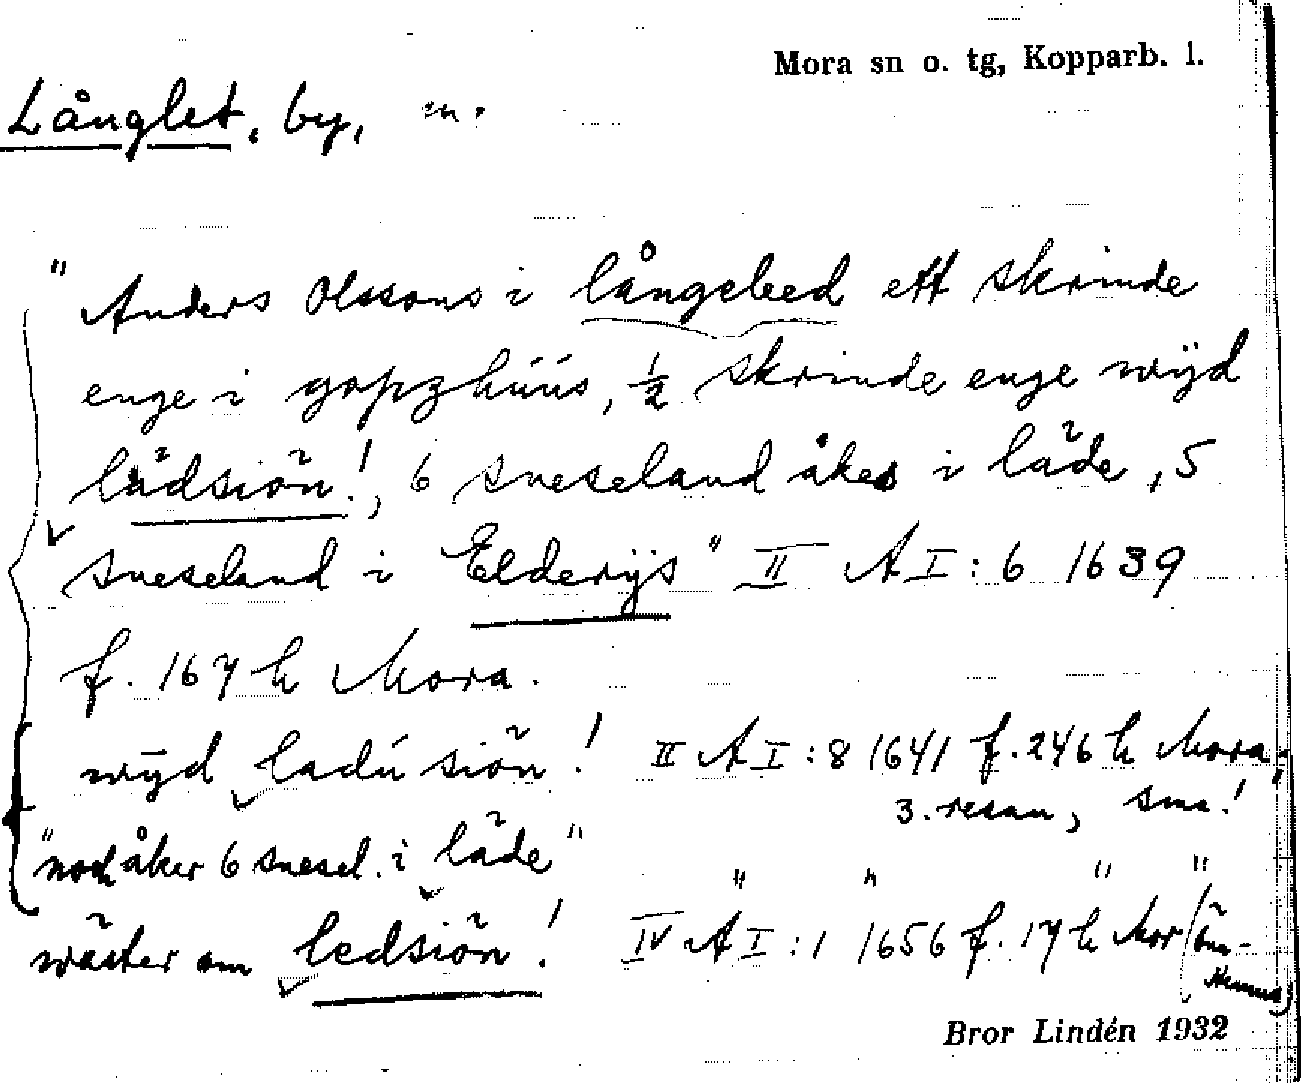 Mora sn o. tg, Kopparb. l.
Långlet, by, m.
"Anders Olssons i långeleed ett skrinde
enge i gopzhúús, ½ skrinde enge wÿd
lädsiön!, 6 sneseland åker i läde, 5
sneseland i Elderÿs" II A I:6 1639
f. 167 h Mora.
wÿd ladú siön! II A I:8 1641 f. 246 h Mora;
3. resan, sma!
"noch åker 6 snesel. i läde" " " " "
wäster om ledsiön! IV A I:1 1656 f. 17 h Mor
Bror Lindén 1932